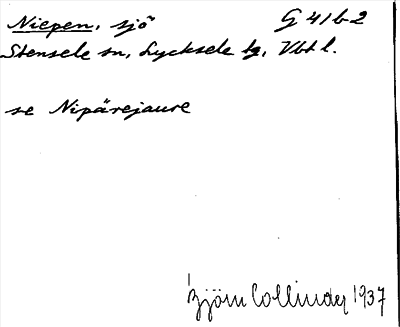 Niepen, sjö G 41 b 2
Stensele sn, Lycksele lg, Vbtl.
se Nipärejaure
Björn Collinder 1937